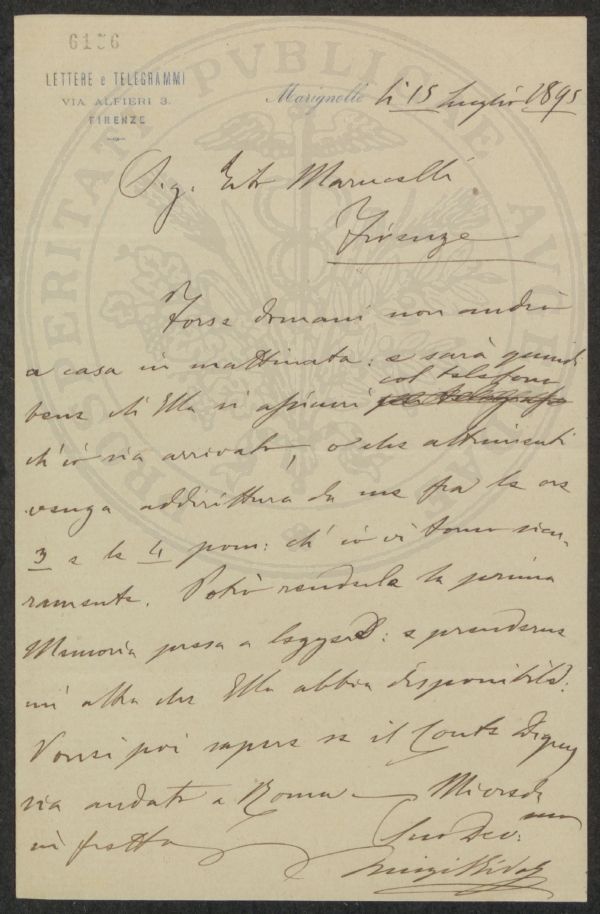 6156
LETTERE e TELEGRAMMI
VIA ALFIERI 3.
FIRENZE
Marignolle li 15 Luglio 1895
Sig. Marucelli
Firenze
Forse domani non andrò
a casa in mattinata: e sarà quindi
bene ch'Ella si assicuri col telefono
ch'io sia arrivato, o che altrimenti
venga addirittura da me fra le ore
3 e le 4 pom: ch'io vi torno sicu-
ramente. Potrò renderle la prima
Memoria presa a leggere: e prenderne
un'altra che Ella abbia disponibile.
Vorrei poi sapere se il Conte
sia andato a Roma — Mi creda
in fretta
Suo Dev.mo
Luigi Ridolfi
PROSPERITATI PVBLICAE AVGENDA